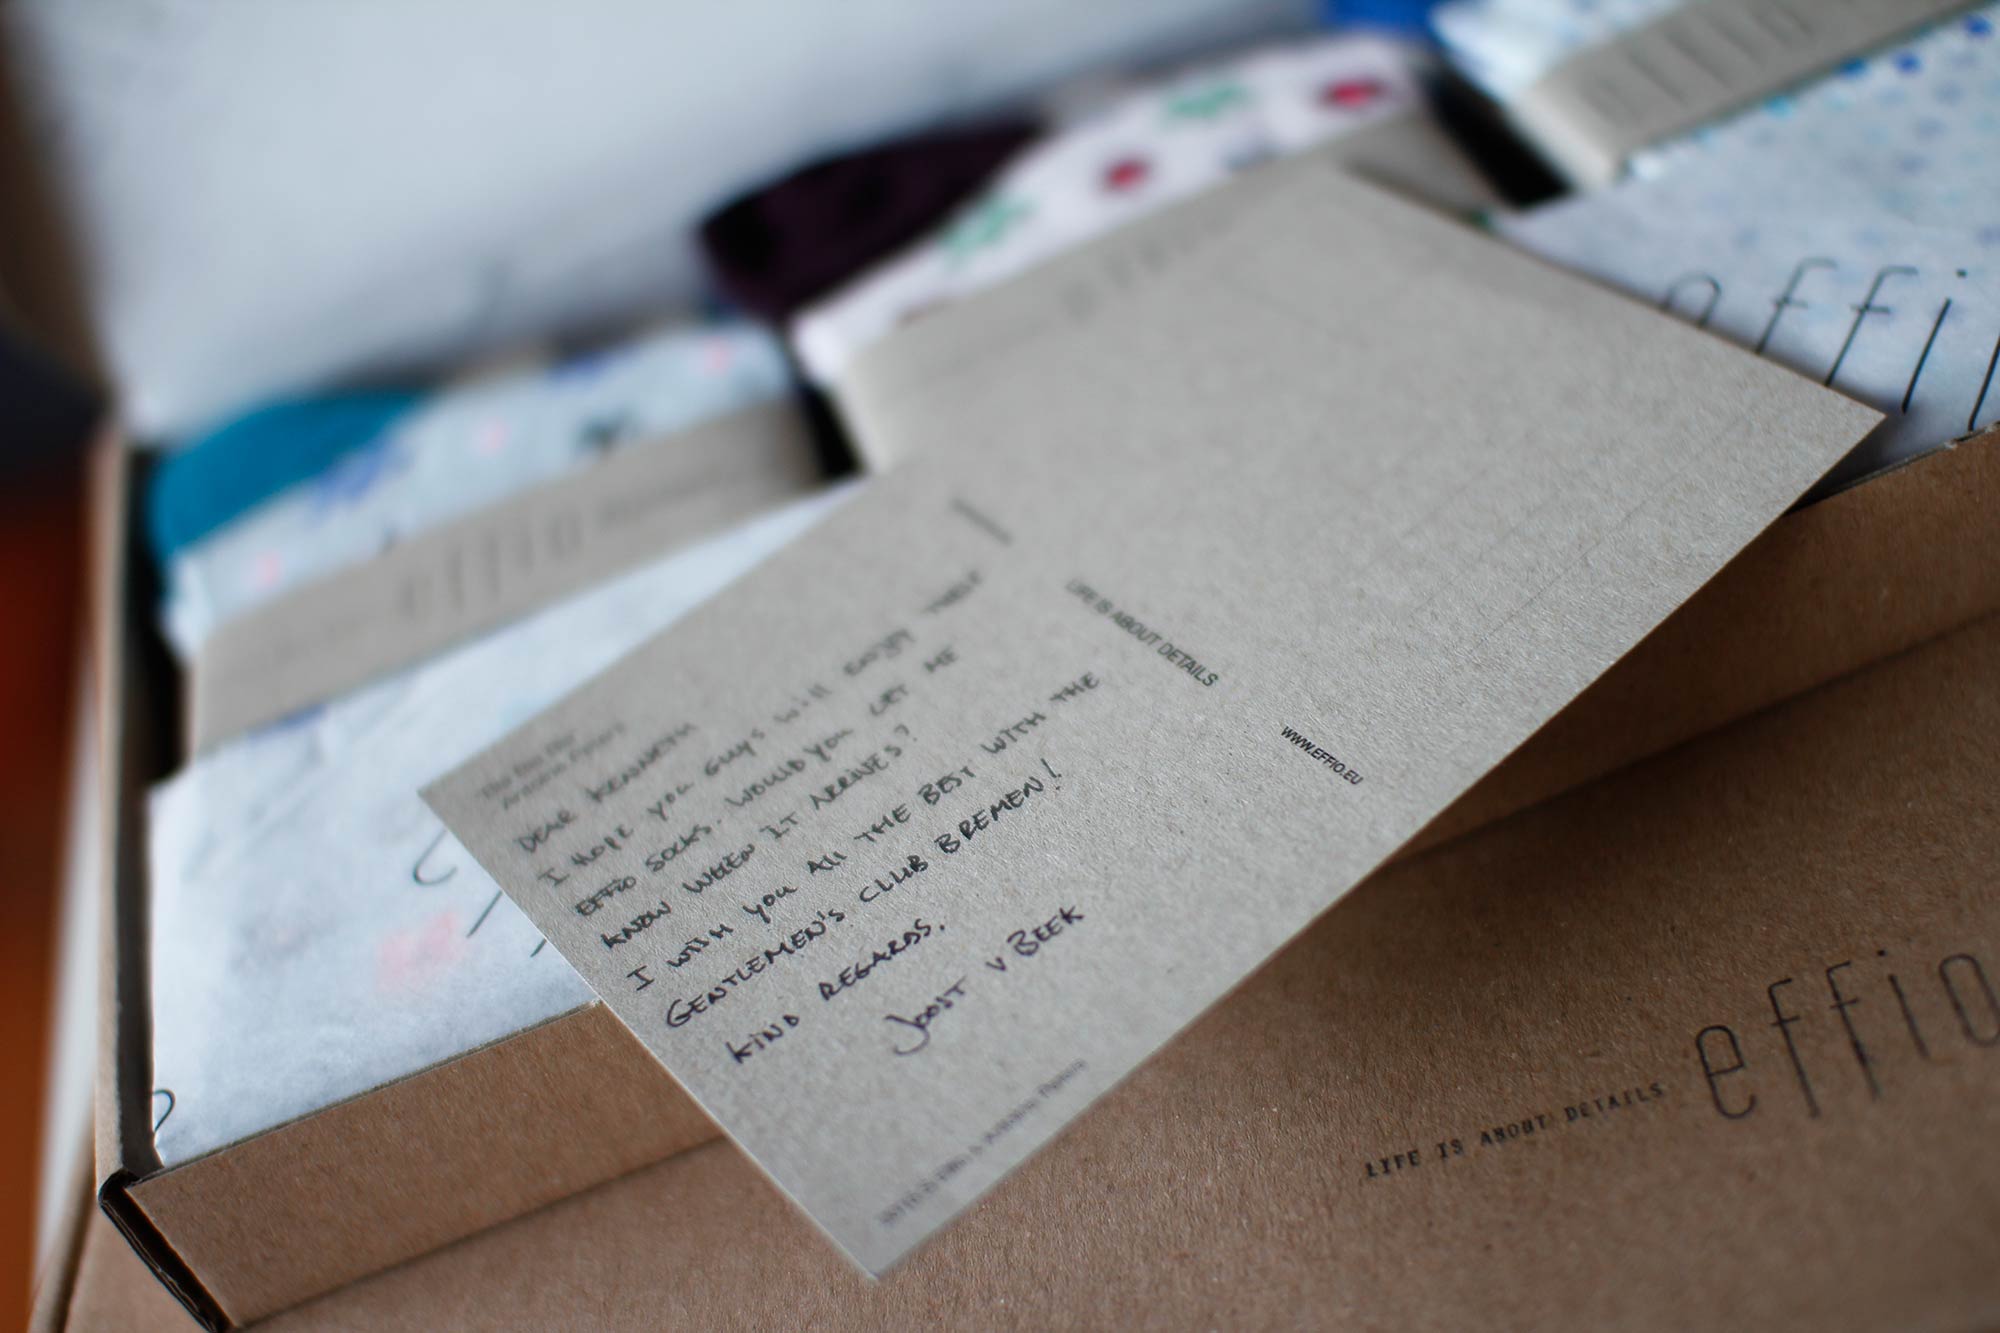 DEAR KENNETH
I HOPE YOU GUYS WILL ENJOY THESE
EFFIO SOCKS. WOULD YOU LET ME
KNOW WHEN IT ARRIVES?
I WISH YOU ALL THE BEST WITH THE
GENTLEMEN'S CLUB BREMEN!
KIND REGARDS,
JOOST V BEEK
LIFE IS ABOUT DETAILS
WWW.EFFIO.EU
effio
effi
LIFE IS ABOUT DETAILS
effio